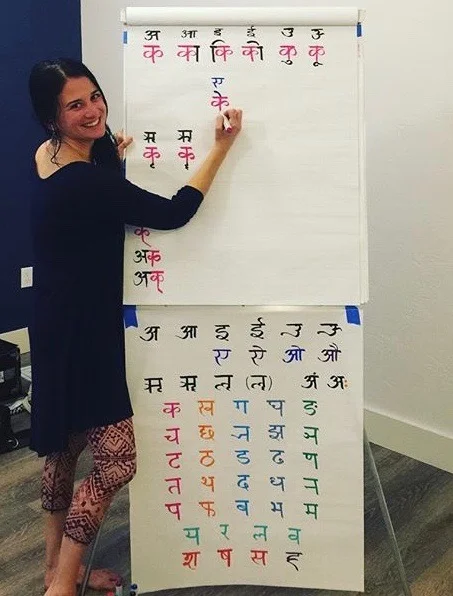 अ आ इ ई उ ऊ
क का कि की कु कू
ए
के
ऋ ॠ
कृ कॄ
क्
अक
अक्
अ आ इ ई उ ऊ
ए ऐ ओ औ
ऋ ॠ ऌ (ॡ) अं अः
क ख ग घ ङ
च छ ज झ ञ
ट ठ ड ढ ण
त थ द ध न
प फ ब भ म
य र ल व
श ष स ह